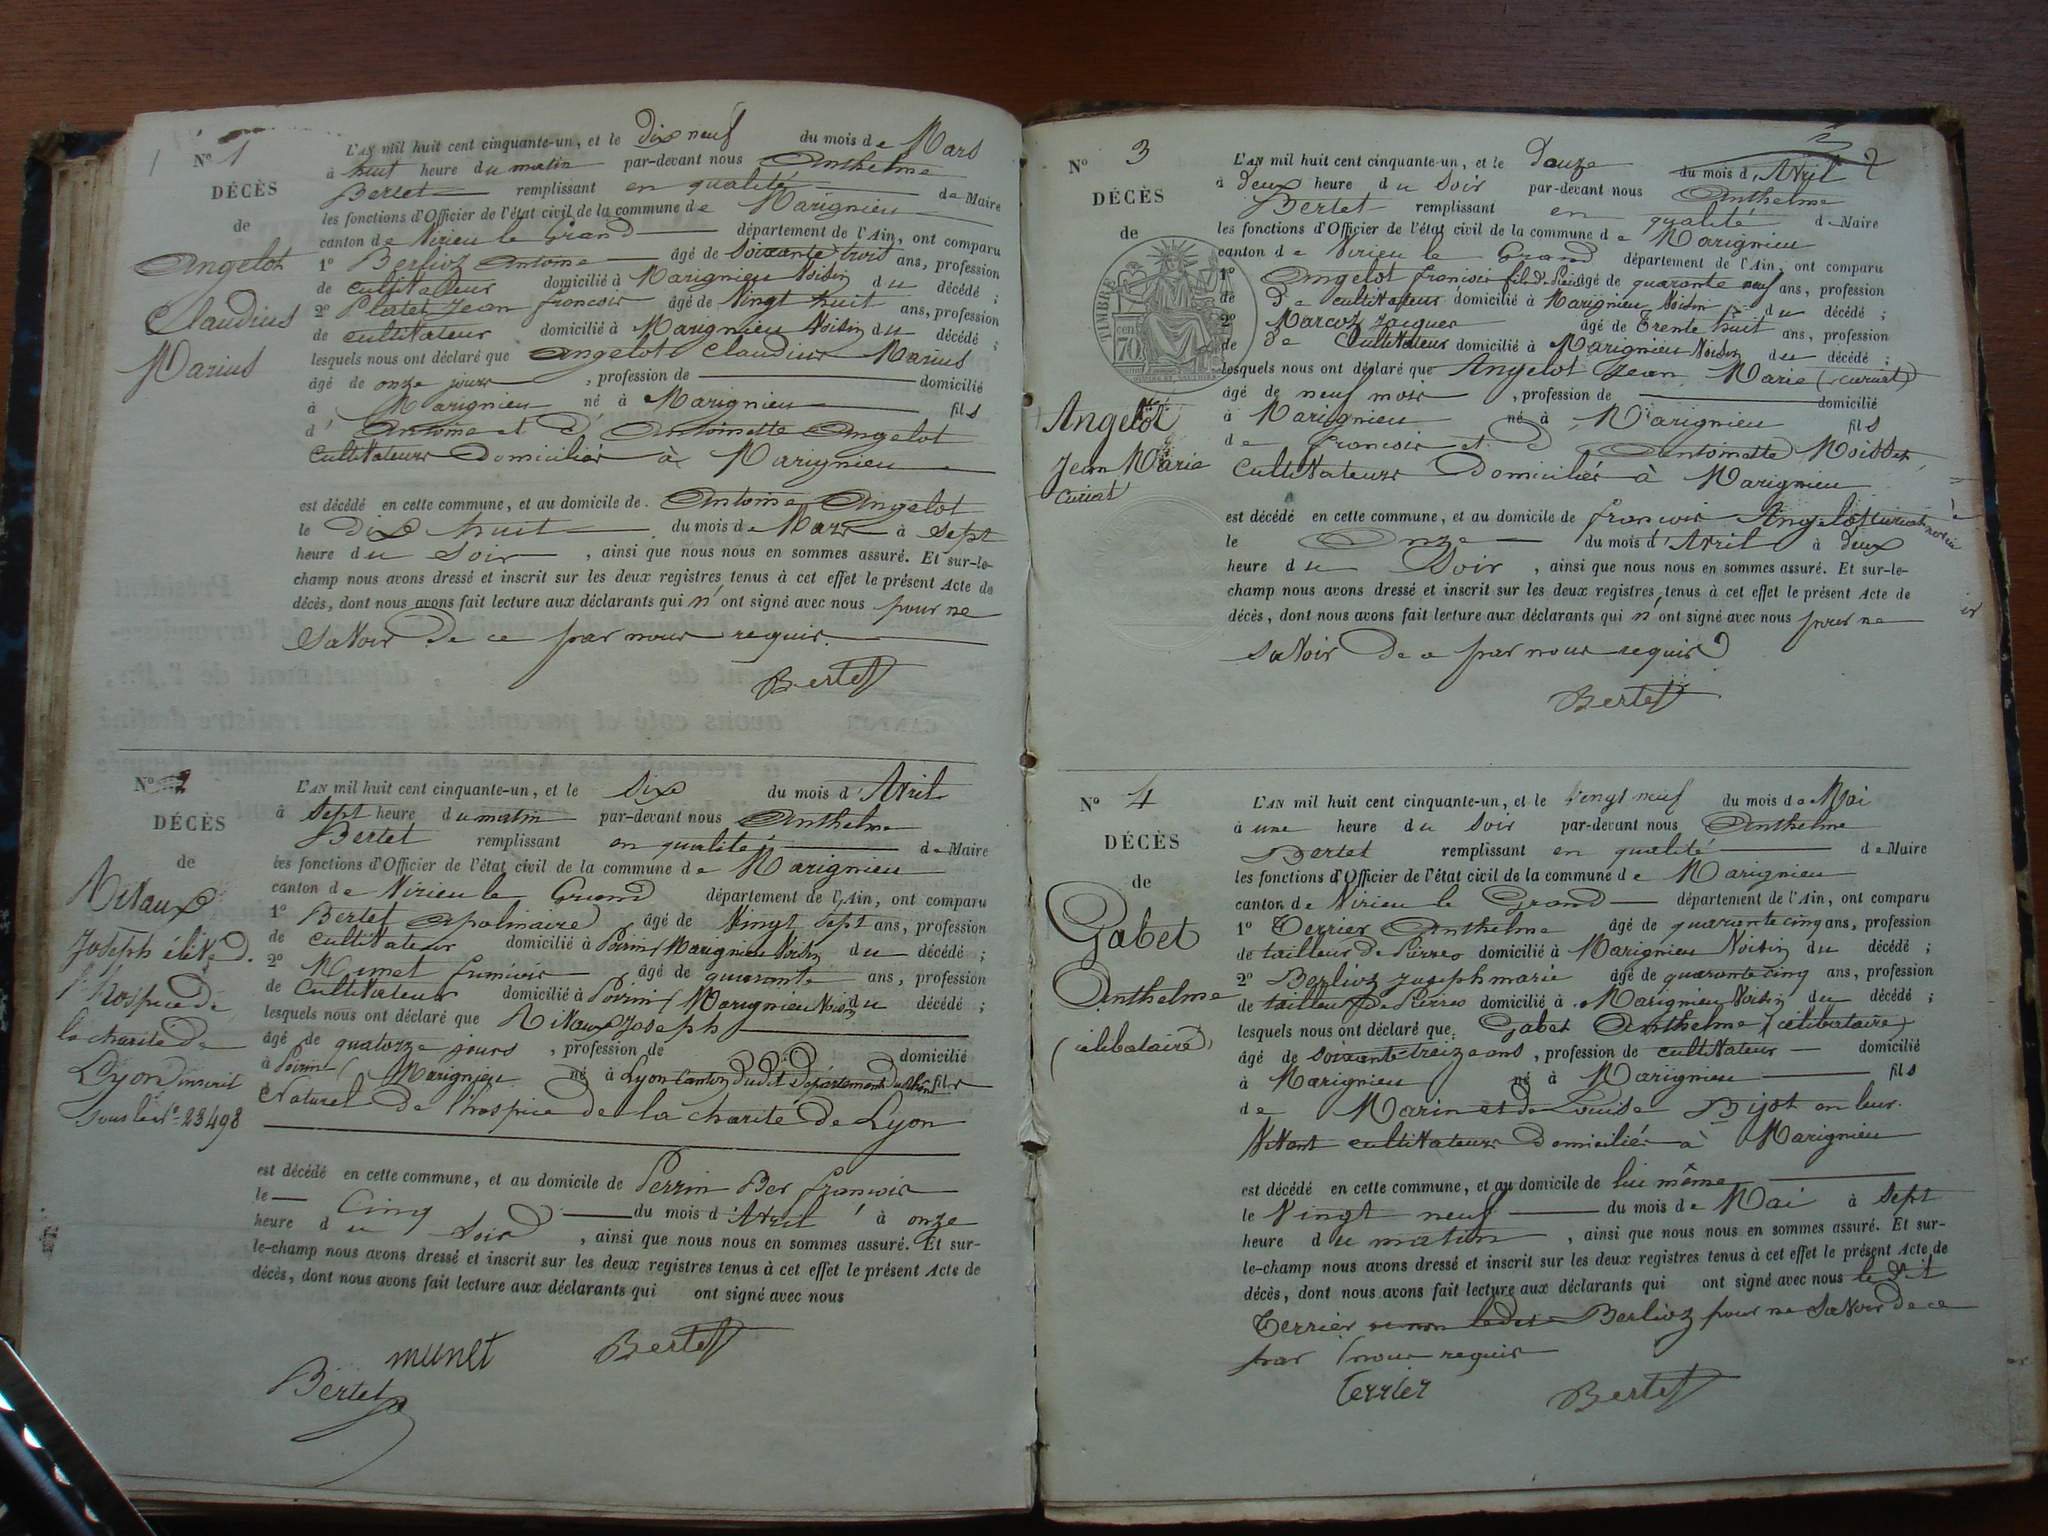 N° 1
DÉCÈS
de
Angelot
Claudius
Marius
L'AN mil huit cent cinquante-un, et le dix neuf du mois de Mars
à huit heure du matin par-devant nous Anthelme
Bertet remplissant en qualité de Maire
les fonctions d'Officier de l'état civil de la commune de Marignieu
canton de Virieu le Grand département de l'Ain, ont comparu
1° Berlioz Antoine âgé de soixante trois ans, profession
de cultivateur domicilié à Marignieu Voisin du décédé ;
2° Platet Jean francois âgé de Vingt huit ans, profession
de cultivateur domicilié à Marignieu Voisin du décédé ;
lesquels nous ont déclaré que Angelot Claudius Marius
âgé de onze jours , profession de domicilié
à Marignieu né à Marignieu fils
d' Antoine et d' Antoinette Angelot
cultivateurs Domiciliés à Marignieu
est décédé en cette commune, et au domicile de Antoine Angelot
le Dix huit du mois de Mars à sept
heure du Soir , ainsi que nous nous en sommes assuré. Et sur-le-
champ nous avons dressé et inscrit sur les deux registres tenus à cet effet le présent Acte de
décès, dont nous avons fait lecture aux déclarants qui n'ont signé avec nous pour ne
savoir De ce par nous requis
Bertet
N° 2
DÉCÈS
de
Nivaux
Joseph élève d.
l'hospice de
la charité de
Lyon inscrit
sous le n° 23498
L'AN mil huit cent cinquante-un, et le six du mois d'Avril
à sept heure du matin par-devant nous Anthelme
Bertet remplissant en qualité de Maire
les fonctions d'Officier de l'état civil de la commune de Marignieu
canton de Virieu le Grand département de l'Ain, ont comparu
1° Bertet apolinaire âgé de Vingt sept ans, profession
de cultivateur domicilié à Poirin Marignieu Voisin du décédé ;
2° Munet francois âgé de quarante ans, profession
de cultivateur domicilié à Poirin Marignieu Voisin du décédé ;
lesquels nous ont déclaré que Nivaux Joseph
âgé de quatorze jours , profession de domicilié
à Poirin Marignieu né à Lyon Canton dudit Département du Rhône fils
Naturel de l'hospice de la charité de Lyon
est décédé en cette commune, et au domicile de Perrin Ber francois
le Cinq du mois d'Avril à onze
heure du Soir , ainsi que nous nous en sommes assuré. Et sur-
le-champ nous avons dressé et inscrit sur les deux registres tenus à cet effet le présent Acte de
décès, dont nous avons fait lecture aux déclarants qui ont signé avec nous
munet Bertet
Bertet
2
N° 3
DÉCÈS
de
TIMBRE
70 cent
Angelot
Jean Marie
curiat
L'AN mil huit cent cinquante-un, et le Douze du mois d'Avril
à Deux heure du Soir par-devant nous Anthelme
Bertet remplissant en qualité de Maire
les fonctions d'Officier de l'état civil de la commune de Marignieu
canton de Virieu le Grand département de l'Ain, ont comparu
1° Angelot francois fils de âgé de quarante neuf ans, profession
de de cultivateur domicilié à Marignieu Voisin du décédé ;
2° Marcoz Jacques âgé de Trente huit ans, profession
de de cultivateur domicilié à Marignieu Voisin du décédé ;
lesquels nous ont déclaré que Angelot Jean Marie (curiat)
âgé de neuf mois , profession de domicilié
à Marignieu né à Marignieu fils
de francois et d Antoinette Moisset
cultivateurs Domiciliés à Marignieu
est décédé en cette commune, et au domicile de francois Angelot curiat
le Onze du mois d'Avril à deux
heure du Soir , ainsi que nous nous en sommes assuré. Et sur-le-
champ nous avons dressé et inscrit sur les deux registres tenus à cet effet le présent Acte de
décès, dont nous avons fait lecture aux déclarants qui n'ont signé avec nous pour ne
savoir De ce par nous requis
Bertet
N° 4
DÉCÈS
de
Gabet
Anthelme
(célibataire)
L'AN mil huit cent cinquante-un, et le Vingt neuf du mois de Mai
à une heure du Soir par-devant nous Anthelme
Bertet remplissant en qualité de Maire
les fonctions d'Officier de l'état civil de la commune de Marignieu
canton de Virieu le Grand département de l'Ain, ont comparu
1° Terrier Anthelme âgé de quarante cinq ans, profession
de tailleur de Pierres domicilié à Marignieu Voisin du décédé ;
2° Berlioz Joseph marie âgé de quarante cinq ans, profession
de tailleur de Pierres domicilié à Marignieu Voisin du décédé ;
lesquels nous ont déclaré que Gabet Anthelme (célibataire)
âgé de soixante treize ans , profession de cultivateur domicilié
à Marignieu né à Marignieu fils
de Marin et de Louise Bijot en leur
Vivant cultivateurs domiciliés à Marignieu
est décédé en cette commune, et au domicile de lui même
le Vingt neuf du mois de Mai à sept
heure du matin , ainsi que nous nous en sommes assuré. Et sur-
le-champ nous avons dressé et inscrit sur les deux registres tenus à cet effet le présent Acte de
décès, dont nous avons fait lecture aux déclarants qui ont signé avec nous le dit
Terrier et non ledit Berlioz pour ne savoir de ce
par nous requis
Terrier Bertet